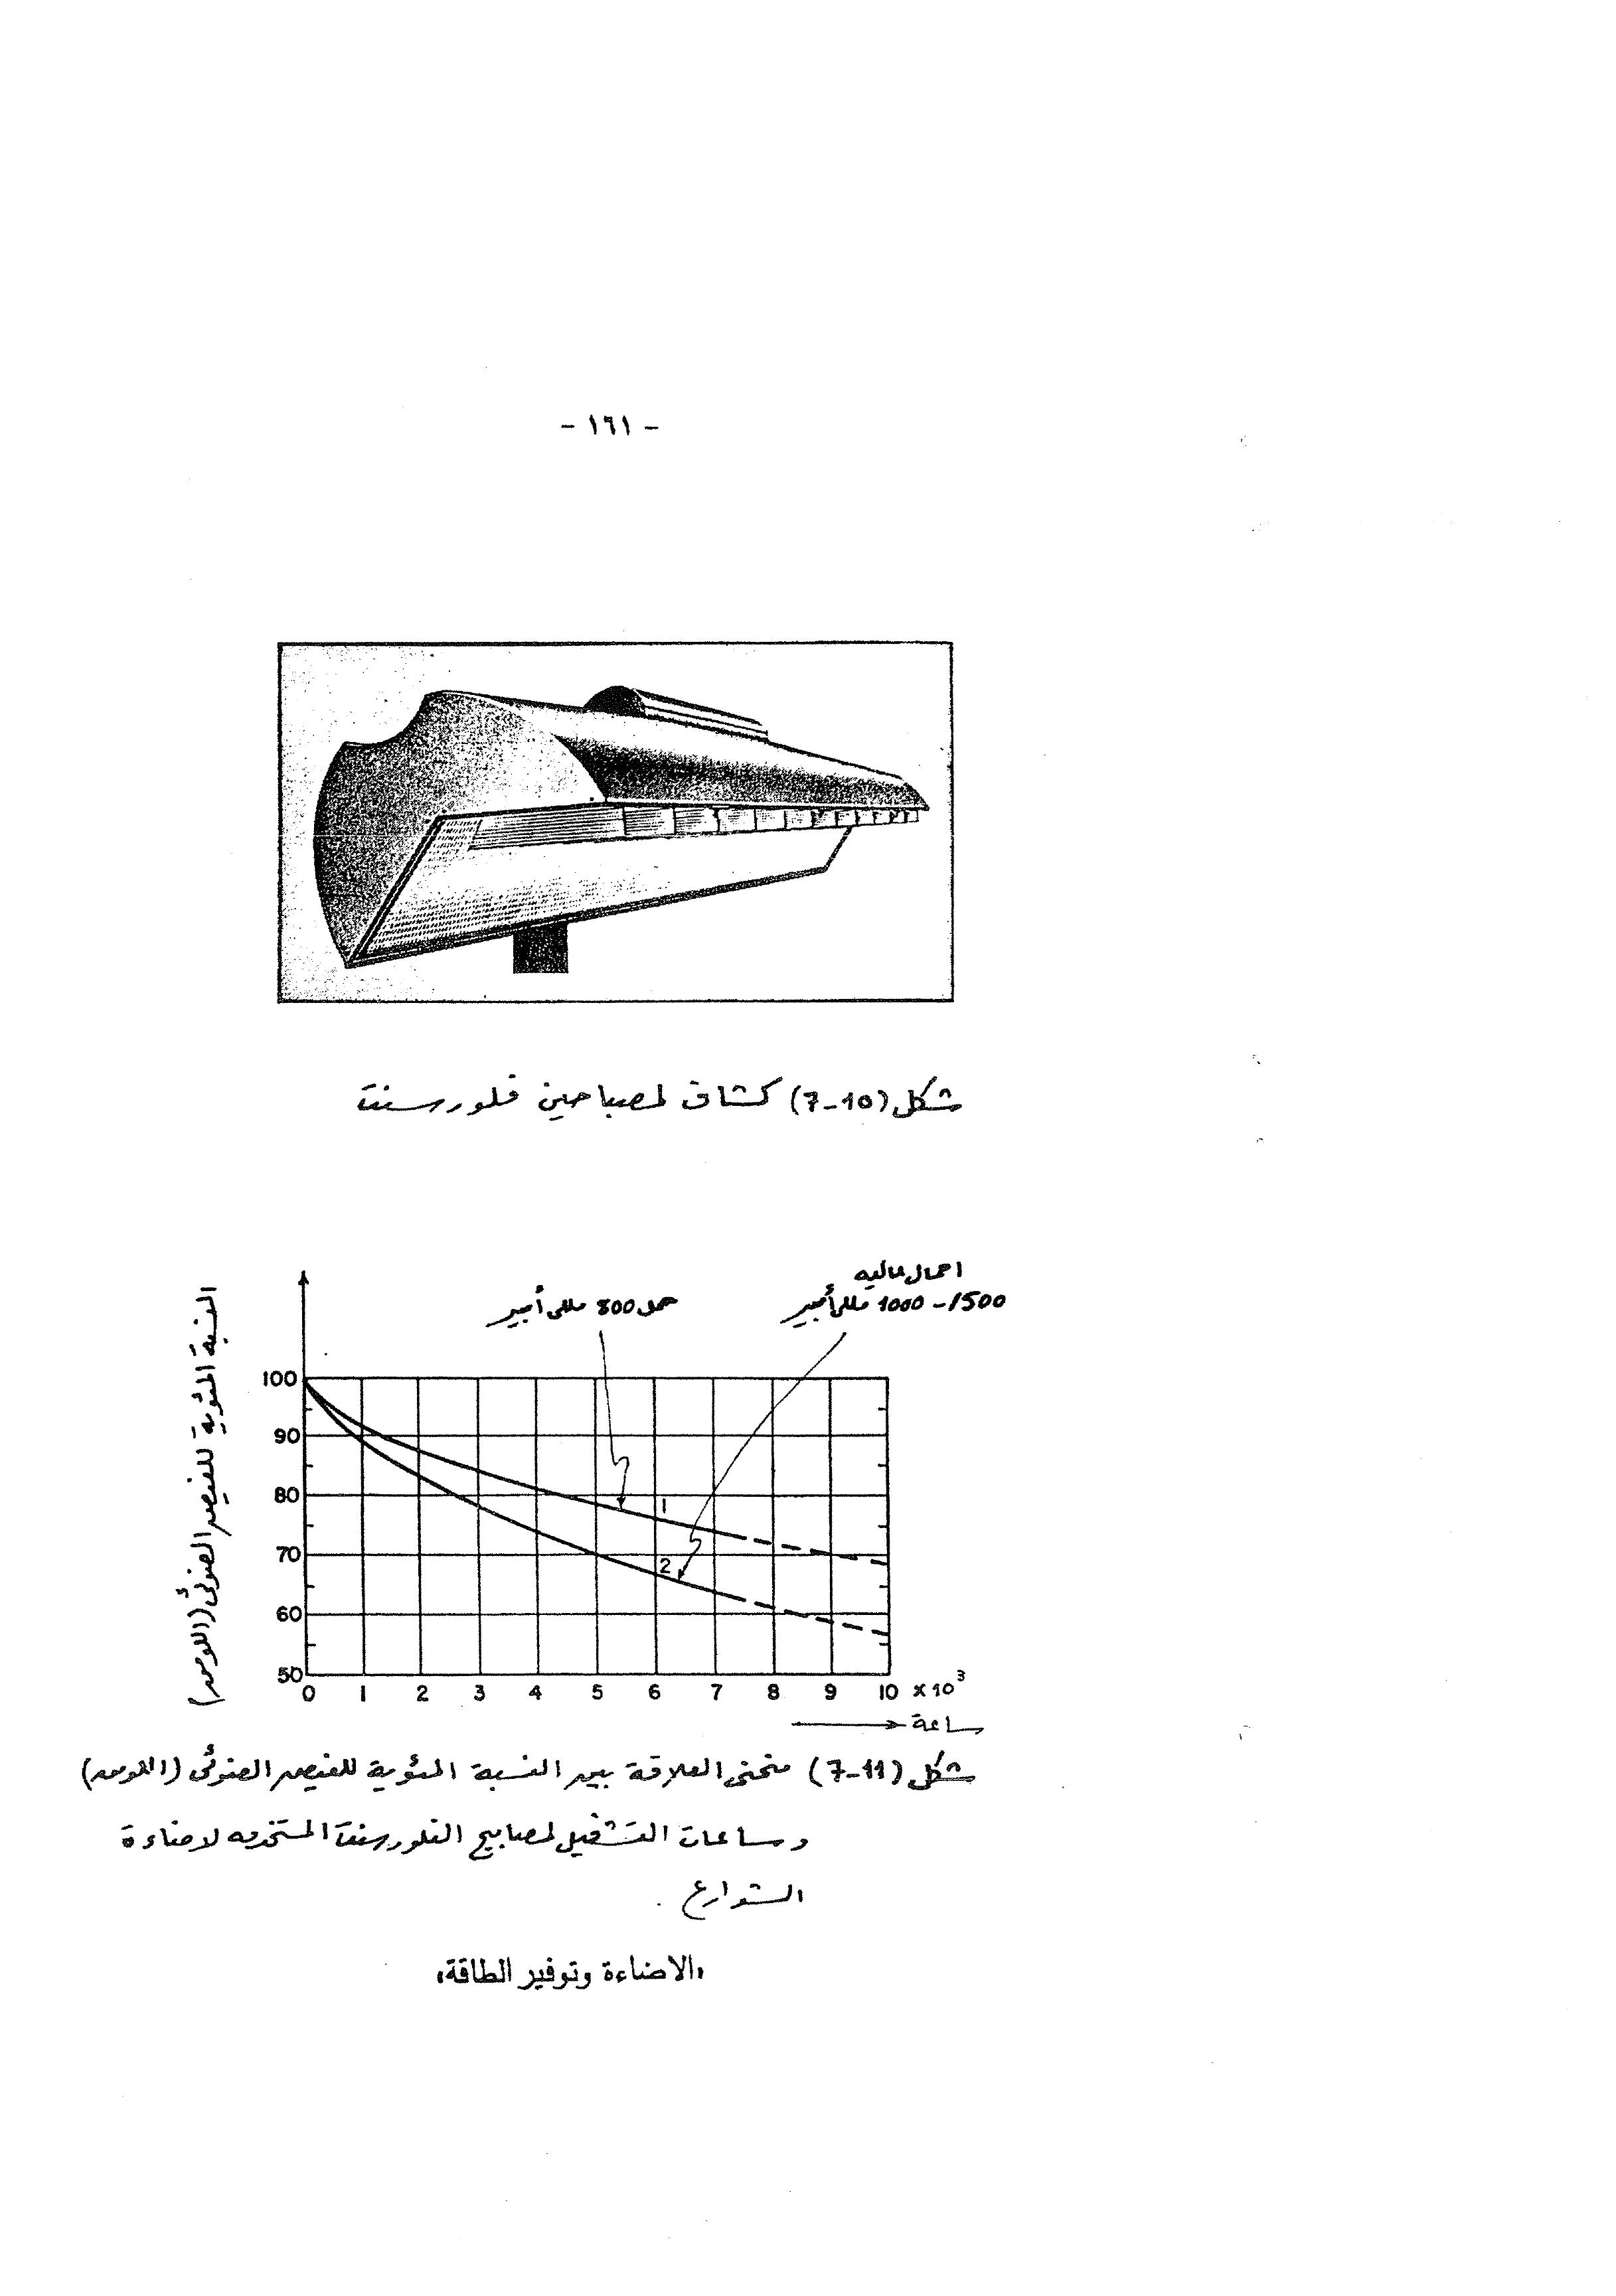 - ١٦١ -
شكل (7-10) كشاف لمصباحين فلورسنت
احمال عاليه
1000 - 1500 مللى أمبير
حمل 800 مللى أمبير
النسبة المئوية للفيض الضوئى (اللومن)
100
90
80
70
60
50
1
2
0 1 2 3 4 5 6 7 8 9 10 x 10³
ساعة
شكل (7-11) منحنى العلاقة بين النسبة المئوية للفيض الضوئى (اللومن)
وساعات التشغيل لمصابيح الفلورسنت المستخدمه لاضاءة
الشوارع .
«الاضاءة وتوفير الطاقة»